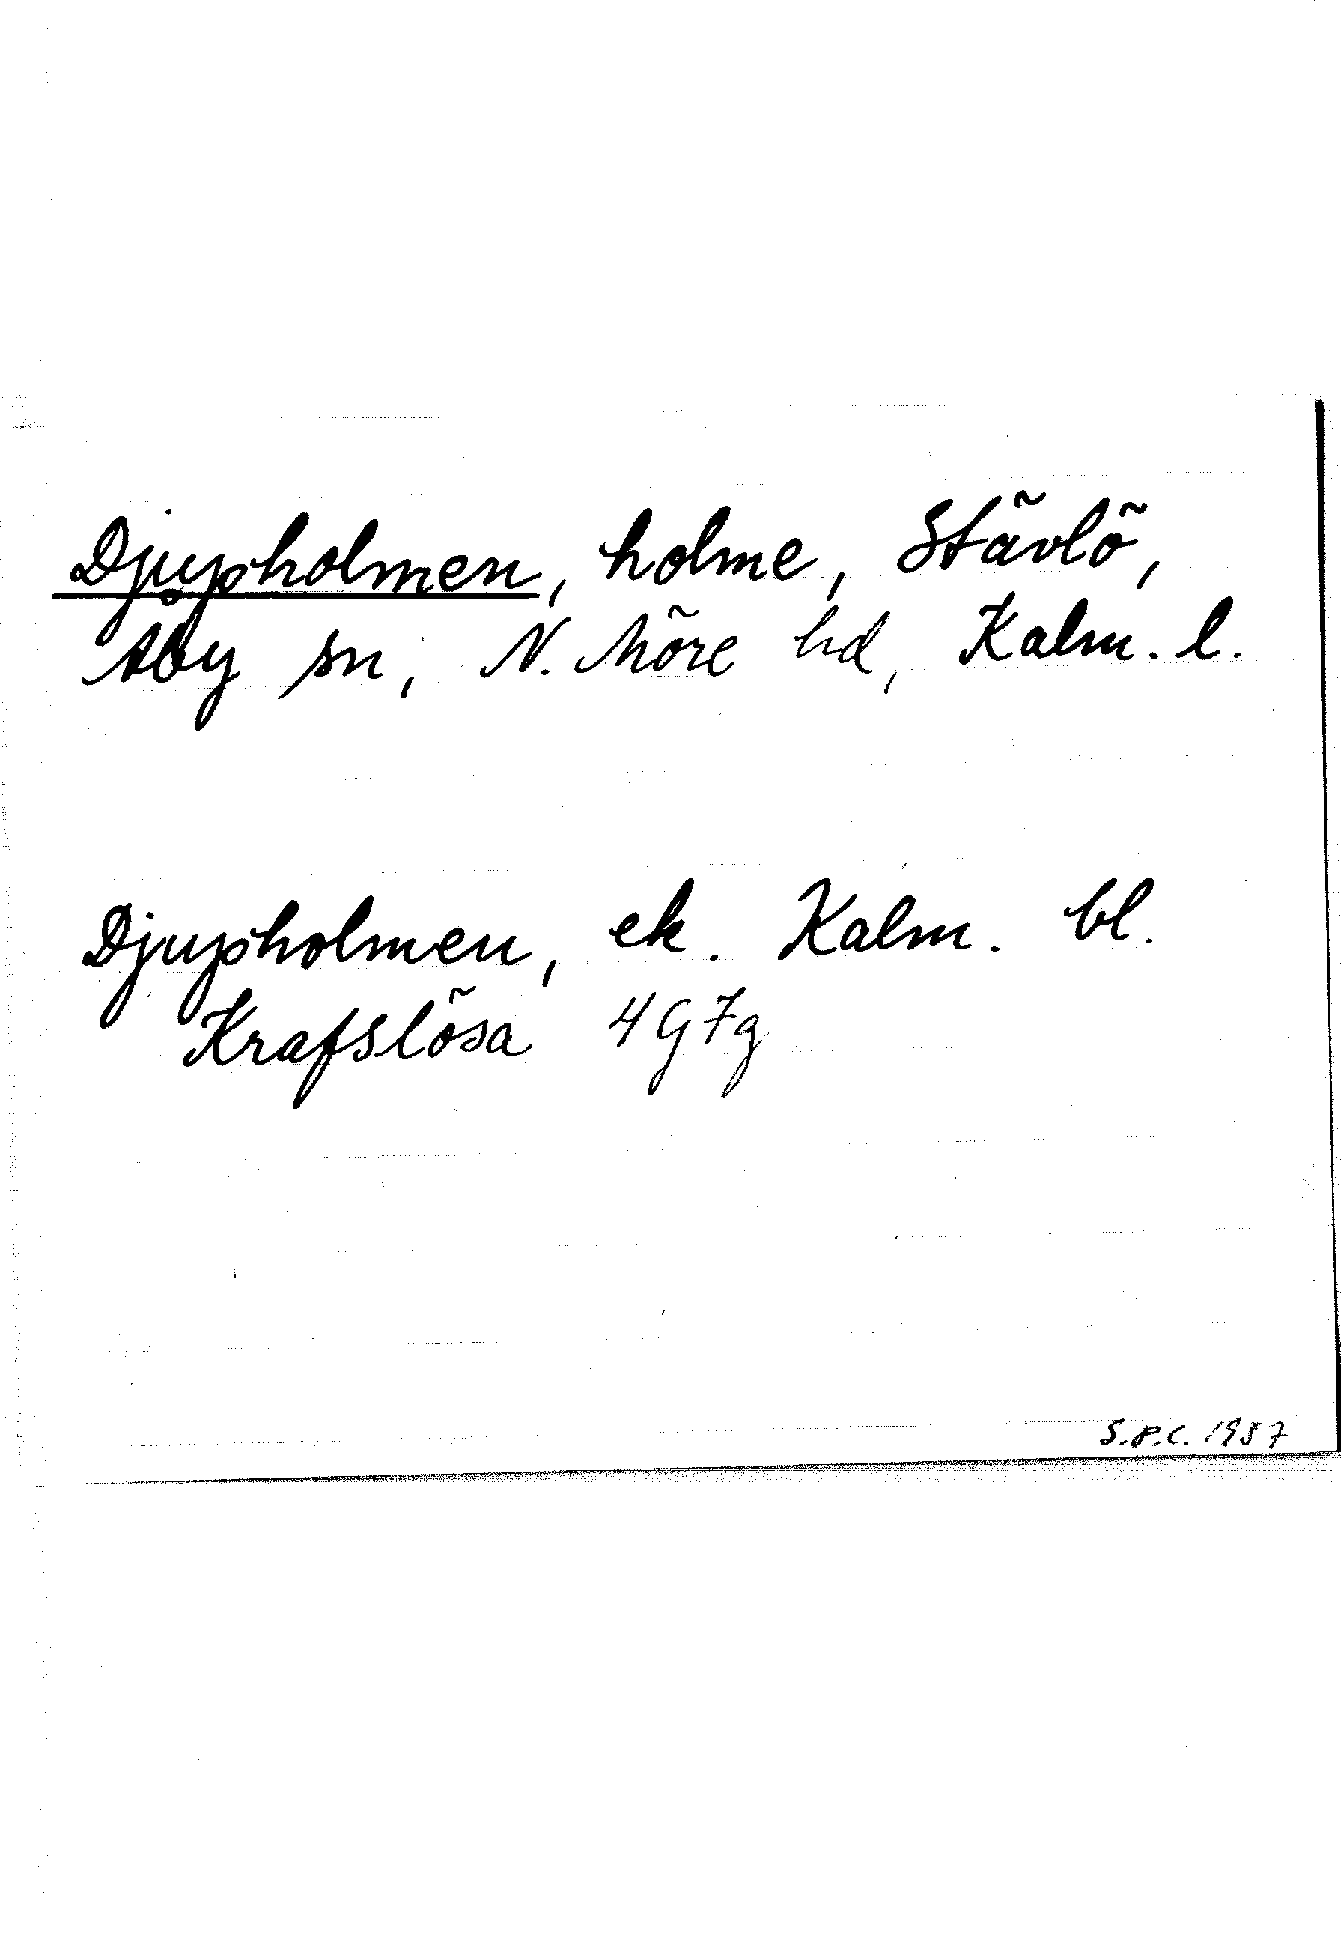 Djupholmen, holme, Stävlö,
Åby sn, N. Möre hd, Kalm. l.
Djupholmen, ek. Kalm. bl.
Krafslösa 4G7g
S.P.C. 1957